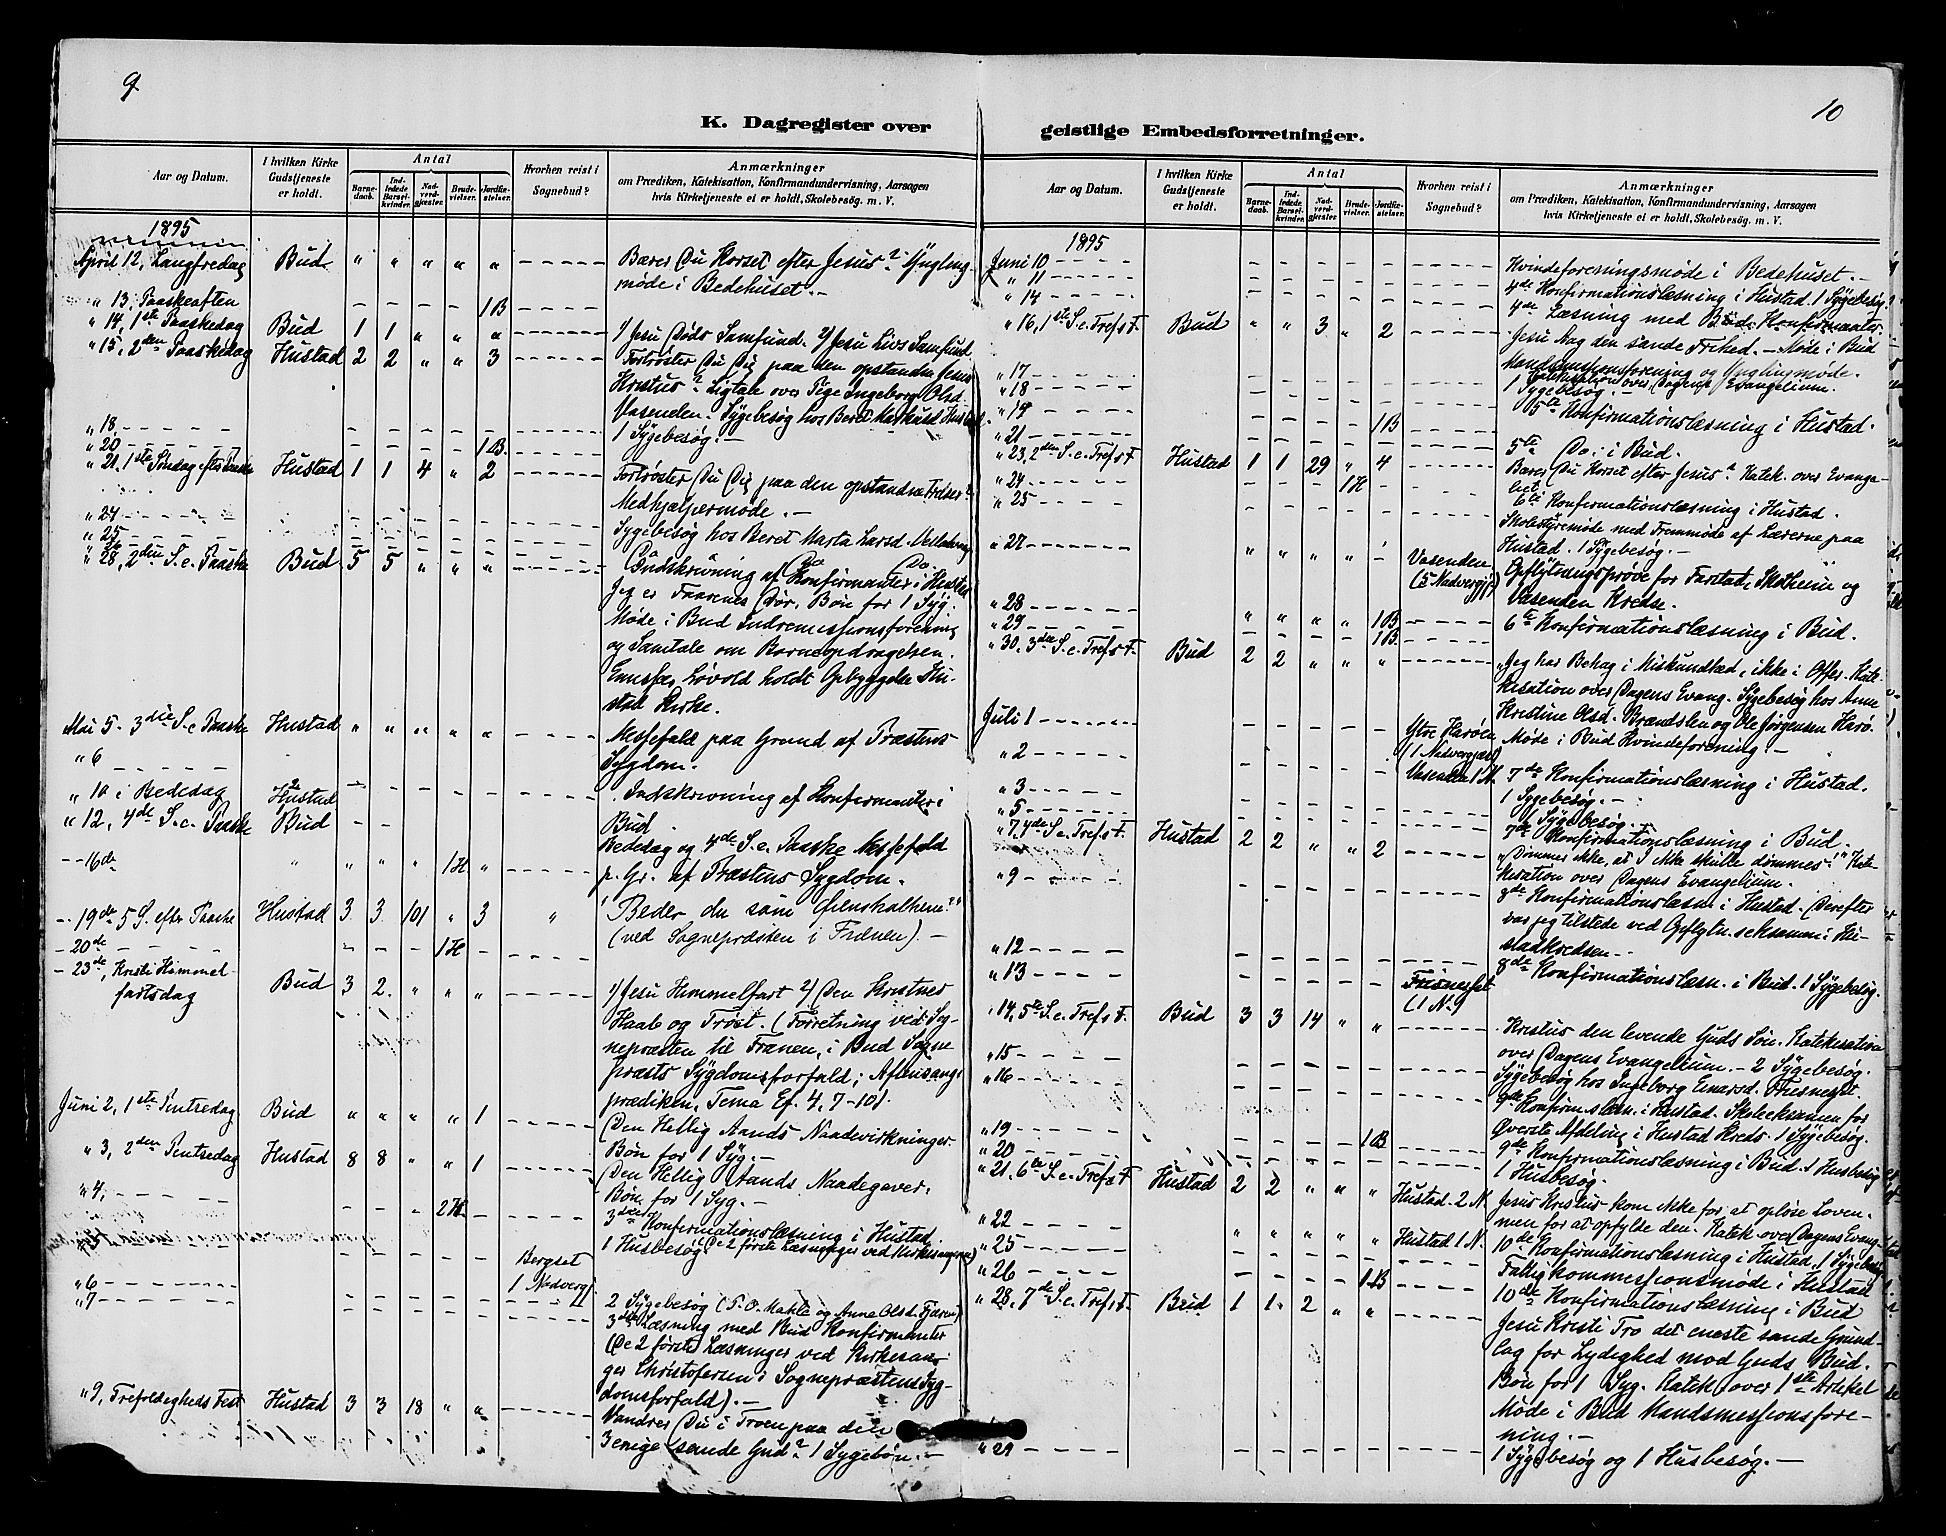 9
K. Dagregister over
Aar og Datum.
I hvilken Kirke Gudstjeneste er holdt.
Antal
Barnedaab.
Indledede Barselkvinder.
Nadverdgjester.
Brudevielser.
Jordfæstelser.
Hvorhen reist i Sognebud?
Anmærkninger
om Prædiken, Katekisation, Konfirmandundervisning, Aarsagen
hvis Kirketjeneste ei er holdt, Skolebesög. m. V.
1895
April 12, Langfredag Bud " " " " " Bærer Du Korset efter Jesus? Yngling
møde i Bedehuset.-
" 13 Paaskeaften 1 B
" 14, 1ste Paaskedag Bud 1 1 " " " 1) Jesu Døds Samfund. 2) Jesu Livs Samfund
" 15, 2den Paaskedag Hustad 2 2 " " 3 Fortrøster Du Dig paa den opstandne Jesus
Kristus? Ligtale over Pige Ingeborg Olsd.
Vasenden. Sygebesøg hos Beret
" 18 1 Sygebesøg.-
" 20 1 B.
" 21, 1ste Søndag efter Paaske Hustad 1 1 4 " 2 Fortrøster Du Dig paa den opstandne Frelser?
Medhjælpermøde.-
" 24 Sygebesøg hos Beret Marta Larsd.
" 25 Do Do
" 28, 2den S. e. Paaske Bud 5 5 " " " Indskrivning af Konfirmanter i Hustad
Jeg er Faarenes Dør. Bøn for 1 Syg.
Møde i Bud Indremissionsforening
og Samtale om Børneopdragelsen.
Emissær Løvold holdt Opbyggelse Hu-
stad Kirke.
Mai 5. 3die S. e. Paaske Hustad " " " " " Messefald paa Grund af Præstens
" 6 Sygdom.
" 10 i Bededag Hustad Indskrivning af Konfirmanter i
" 12, 4de S. e. Paaske Bud Bud.
Bededag og 4de S. e. Paaske Messefald
-- 16de " " " " 1 H " p. Gr. af Præstens Sygdom.
-. 19de 5 S. efter Paaske Hustad 3 3 101 " 3 " "Beder du som Øienskalkene?"
(ved Sognepræsten i Frænen).-
- 20de 1 H
- 23de, Kristi Himmel-
fartsdag Bud 3 2 " " " 1) Jesu Himmelfart 2) Den Kristnes
Haab og Trøst. (Forretning ved Sog-
nepræsten til Frænen, i Bud Sogne
præsts Sygdomsforfald; Aftensang,
prædiken, Tema Ef. 4, 7-10).
Juni 2, 1ste Pintsedag Bud " " " " 1 Den Hellig Aands Naadevirkninger
Bøn for 1 Syg.-
" 3, 2den Pintsedag Hustad 8 8 " " 1 Den Hellig Aands Naadegaver.
Bøn for 1 Syg.-
" 4, 2 H. 3die Konfirmationslæsning i Hustad.
1 Husbesøg (De 2 første Læsninger ved Kirkesangeren)
Bergset
1 Nadverg.
" 6 2 Sygebesøg (P. O. Mahle og Anne Olsd. Fjæren)
" 7 3die Læsning med Bud Konfirmanter
(De 2 første Læsninger ved Kirkesan-
ger Christofersen i Sognepræstens Syg-
domsforfald).-
" 9, Trefoldigheds Fest Hustad 3 3 18 " " Vandrer Du i Troen paa den
3enige sande Gud? 1 Sygebøn.-
10
geistlige Embedsforretninger.
Aar og Datum.
I hvilken Kirke Gudstjeneste er holdt.
Antal
Barnedaab.
Indledede Barselkvinder.
Nadverdgjester.
Brudevielser.
Jordfæstelser.
Hvorhen reist i Sognebud?
Anmærkninger
om Prædiken, Katekisation, Konfirmandundervisning, Aarsagen
hvis Kirketjeneste ei er holdt, Skolebesög. m. V.
1895
Juni 10 Kvindeforeningsmøde i Bedehuset.-
" 11 4de Konfirmationslæsning i Hustad. 1 Sygebesøg.
" 14 4de Læsning med Buds Konfirmanter.
" 16, 1ste S. e. Tref. F. Bud " " 3 " 2 Jesu Aag den sande Frihed. - Møde i Bud
Mandsmissionsforening og Ynglingmøde.
Katekisation over Dagens Evangelium.
" 17 1 Sygebesøg.-
" 18 5te Konfirmationslæsning i Hustad.
" 19 1 B
" 21 5te Do. i Bud.
" 23, 2den S. e. Tref. s F. Hustad 1 1 29 " 4 Bærer Du Korset efter Jesus? Katek. over Evange-
" 24 1 H liet.
" 25 6te Konfirmationslæsning i Hustad.
Skolestyremøde med Fremmøde af Lærerne paa
Hustad. 1 Sygebesøg.-
" 27 " " " " Vasenden Opflytningsprøve for Farstad, Skotheim og
(5 Nadvergj.) Vasenden Kredse.
" 28 " " " " 1 B 6te Konfirmationslæsning i Bud.
" 29 1 B.
" 30. 3die S. e. Tref. s F. Bud 2 2 " " " "Jeg har Behag i Miskundhed, ikke i Offer. Kate-
kisation over Dagens Evang. Sygebesøg hos Anne
Kristine Olsd. og Ole Jørgensen Harø.
Juli 1 Ytre Harøen Møde i Bud Kvindeforening.-
(1 Nadvergjæst)
" 2 Vasenden 1 N. 7de Konfirmationslæsning i Hustad.
" 3 1 Sygebesøg.-
" 5 1 Sygebesøg.-
7de Konfirmationslæsning i Bud.
" 7, 4de S. e. Tref. s F. Hustad 2 2 " " 2 "Dømmer ikke, at I ikke skulle dømmes!" Kate-
kisation over Dagens Evangelium.
" 9 8de Konfirmationslæsn. i Hustad. (Derefter
var jeg tilstede ved Opflytn.seksamen i Hu-
stadkredsen.-
" 12 8de Konfirmationslæsn. i Bud. 1 Sygebesøg.
" 13 Frisnesset
(1 N.)
" 14, 5te S. e. Tref. s F. Bud 3 3 14 " " Kristus den levende Guds Søn. Katekisation
over Dagens Evangelium. - 2 Sygebesøg.
" 15 Sygebesøg hos Ingeborg Einarsd. Frisnesset.
" 16 9de Konfirm.læsn. i Hustad. Skoleeksamen for
øverste Afdeling i Hustad Kreds. 1 Sygebesøg.
" 19 1 B 9de Konfirmationslæsning i Bud. 1 Husbesøg
" 20 1 Husbesøg.
" 21, 6te S. e. Tref. s F. Hustad 2 2 " " " Hustad. 2 N. Jesus Kristus kom ikke for at opløse Loven,
men for at opfylde den. Katek. over Dagens Evang.
" 22 " " " " " Hustad 1 N. 10de Konfirmationslæsning i Hustad. 1 Sygebesøg
" 25 Fattigkommissionsmøde i Hustad
" 26 1 B 10de Konfirmationslæsning i Bud
" 28, 7de S. e. Tref. s F. Bud 1 1 2 " " Jesu Kristi Tro det eneste sande Grund-
lag for Lydighed mod Guds Bud.
Bøn for 1 Syg. Katek. over 1ste Artikel
Møde i Bud Mandsmissionsfore-
ning.-
" 29 1 Sygebesøg og 1 Husbesøg.-